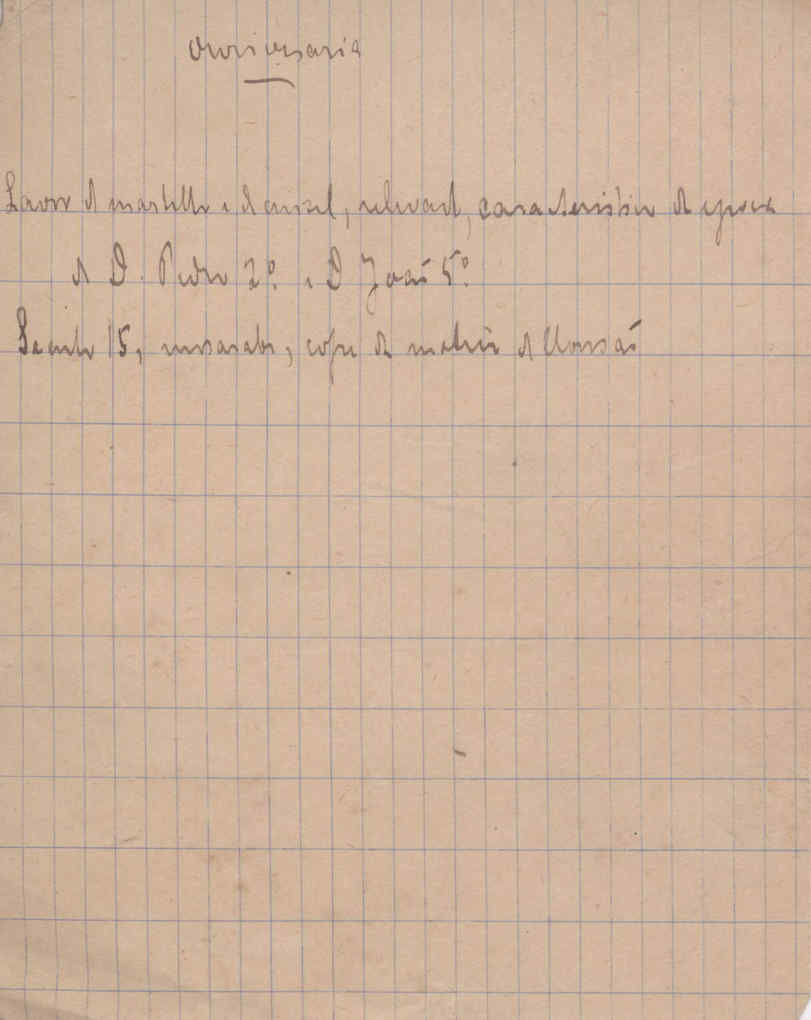 Ourivesaria
Lavor de martello e de cinzel, relevado, caracteristico da epoca
de D. Pedro 2º e D João 5º.
Seculo 15, cofre da matriz de Monsão